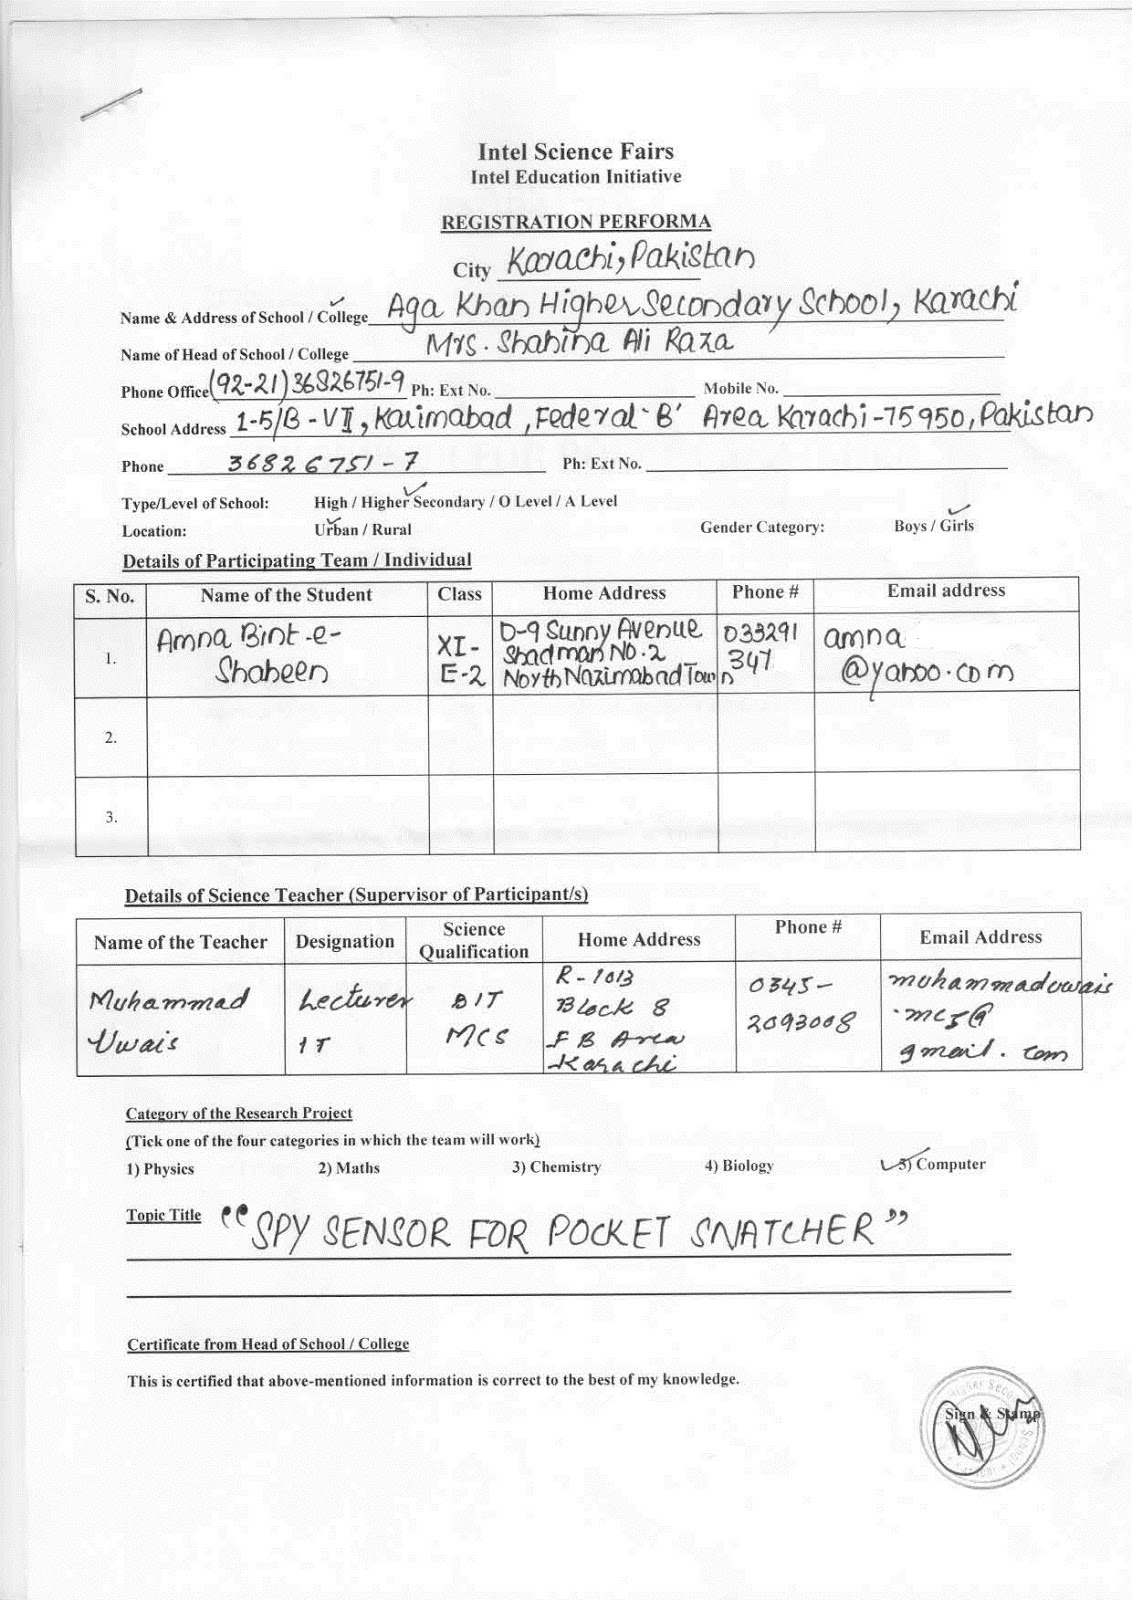 Intel Science Fairs
Intel Education Initiative
REGISTRATION PERFORMA
City Karachi, Pakistan
Name & Address of School / College Aga Khan Higher Secondary School, Karachi
Name of Head of School / College Mrs. Shahina Ali Raza
Phone Office (92-21) 36826751-9 Ph: Ext No. Mobile No.
School Address 1-5/B-VII, Karimabad, Federal 'B' Area Karachi-75950, Pakistan
Phone 36826751-7 Ph: Ext No.
Type/Level of School: High / Higher Secondary / O Level / A Level
Location: Urban / Rural Gender Category: Boys / Girls
Details of Participating Team / Individual
S. No. Name of the Student Class Home Address Phone # Email address
1. Amna Bint-e-Shaheen XI-E-2 D-9 Sunny Avenue Shadman No.2 North Nazimabad Town 033291347 amna@yahoo.com
2.
3.
Details of Science Teacher (Supervisor of Participant/s)
Name of the Teacher Designation Science Qualification Home Address Phone # Email Address
Muhammad Uwais Lecturer IT BIT MCS R-1013 Block 8 F B Area Karachi 0345-2093008 muhammaduwais.mcs@gmail.com
Category of the Research Project
(Tick one of the four categories in which the team will work)
1) Physics 2) Maths 3) Chemistry 4) Biology 5) Computer
Topic Title "SPY SENSOR FOR POCKET SNATCHER"
Certificate from Head of School / College
This is certified that above-mentioned information is correct to the best of my knowledge.
Sign & Stamp